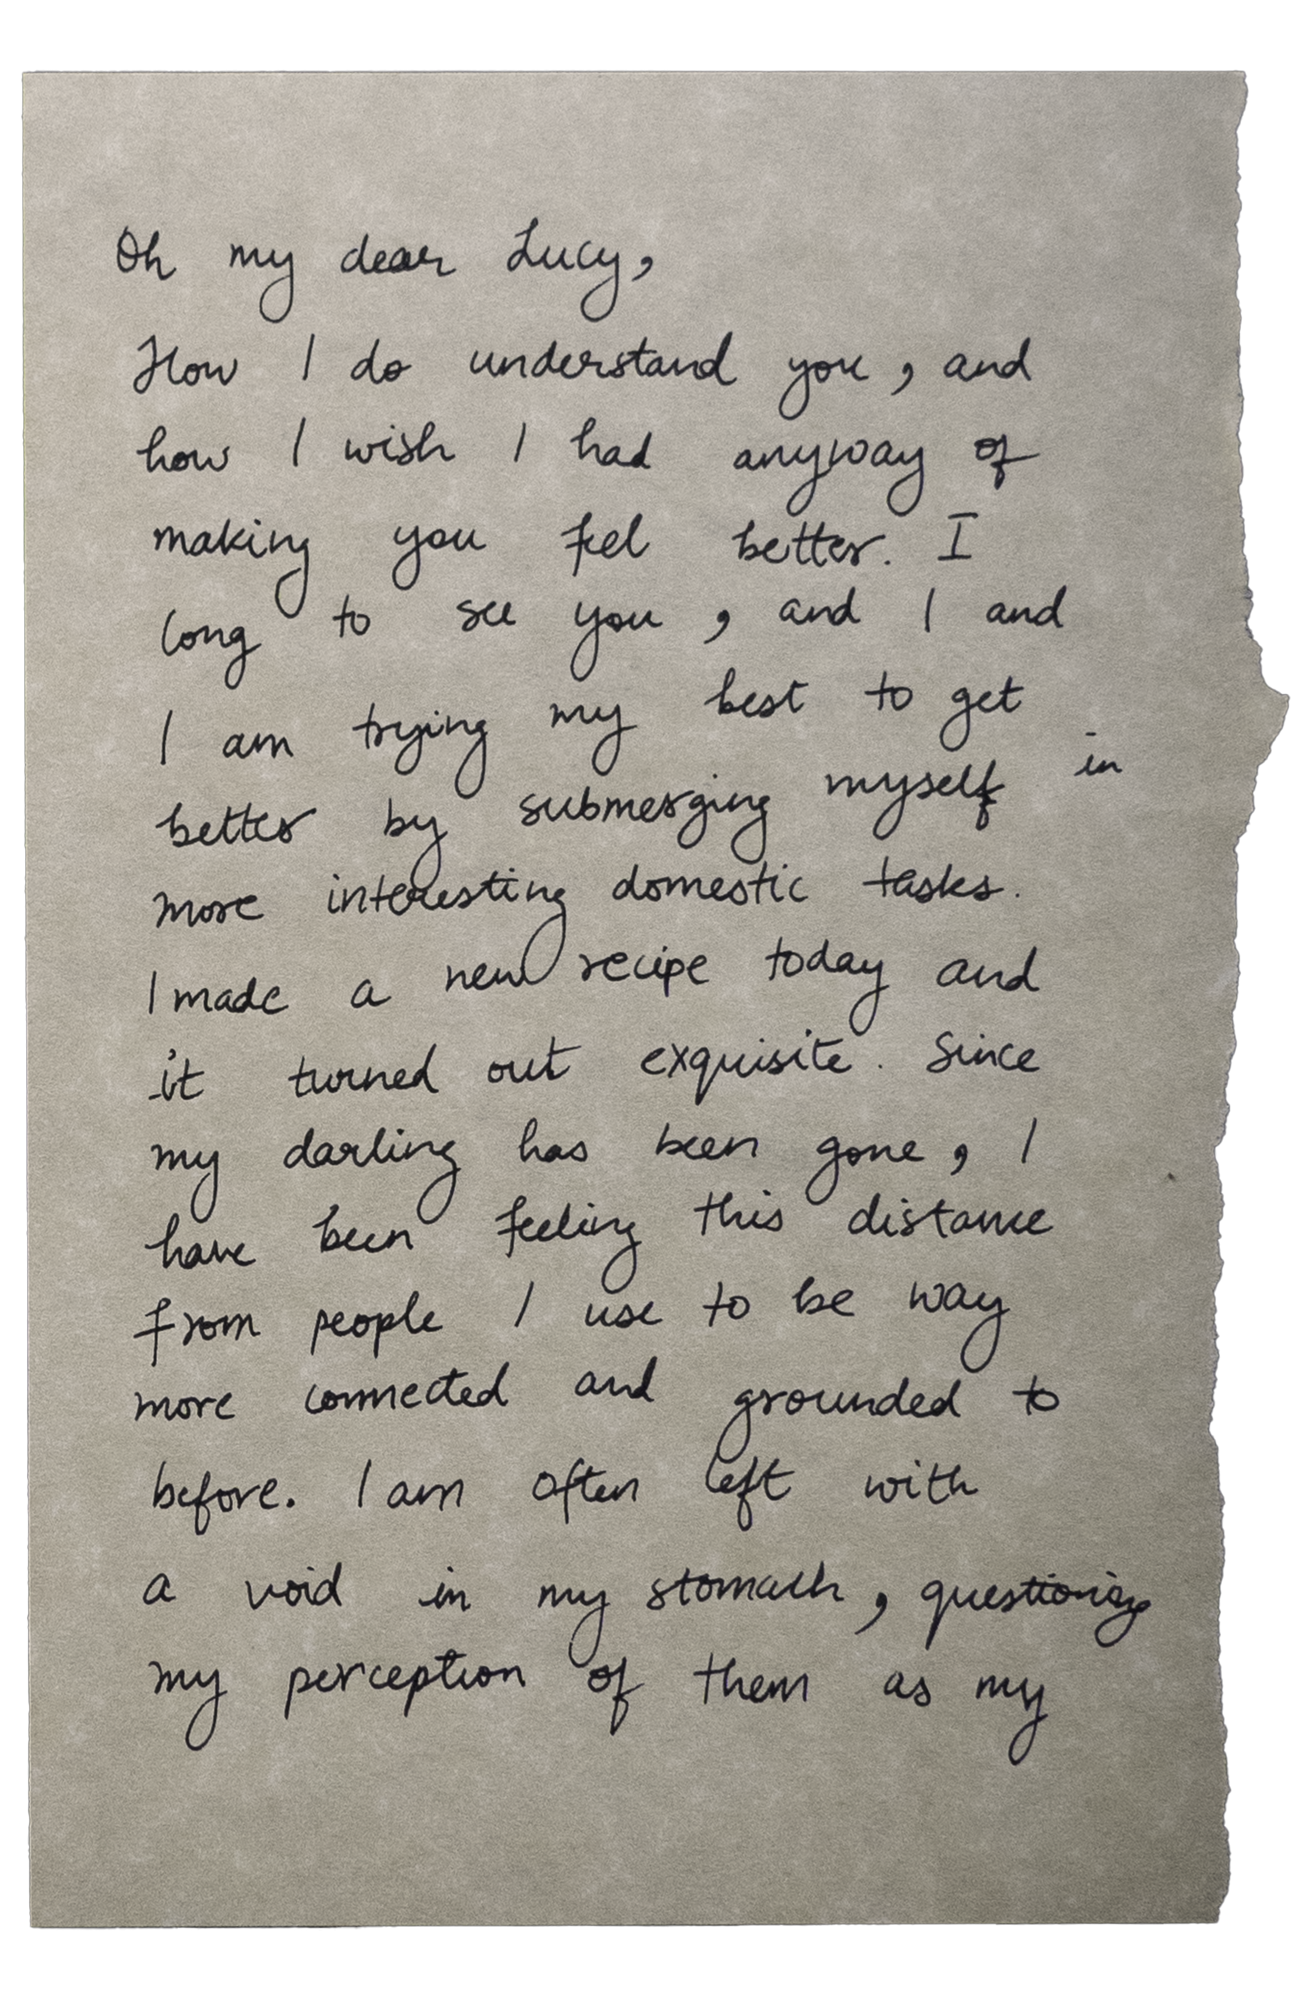 Oh my dear Lucy,
How I do understand you, and
how I wish I had anyway of
making you feel better. I
long to see you, and I and
I am trying my best to get
better by submerging myself in
more interesting domestic tasks.
I made a new recipe today and
it turned out exquisite. Since
my darling has been gone, I
have been feeling this distance
from people I use to be way
more connected and grounded to
before. I am often left with
a void in my stomach, questioning
my perception of them as my